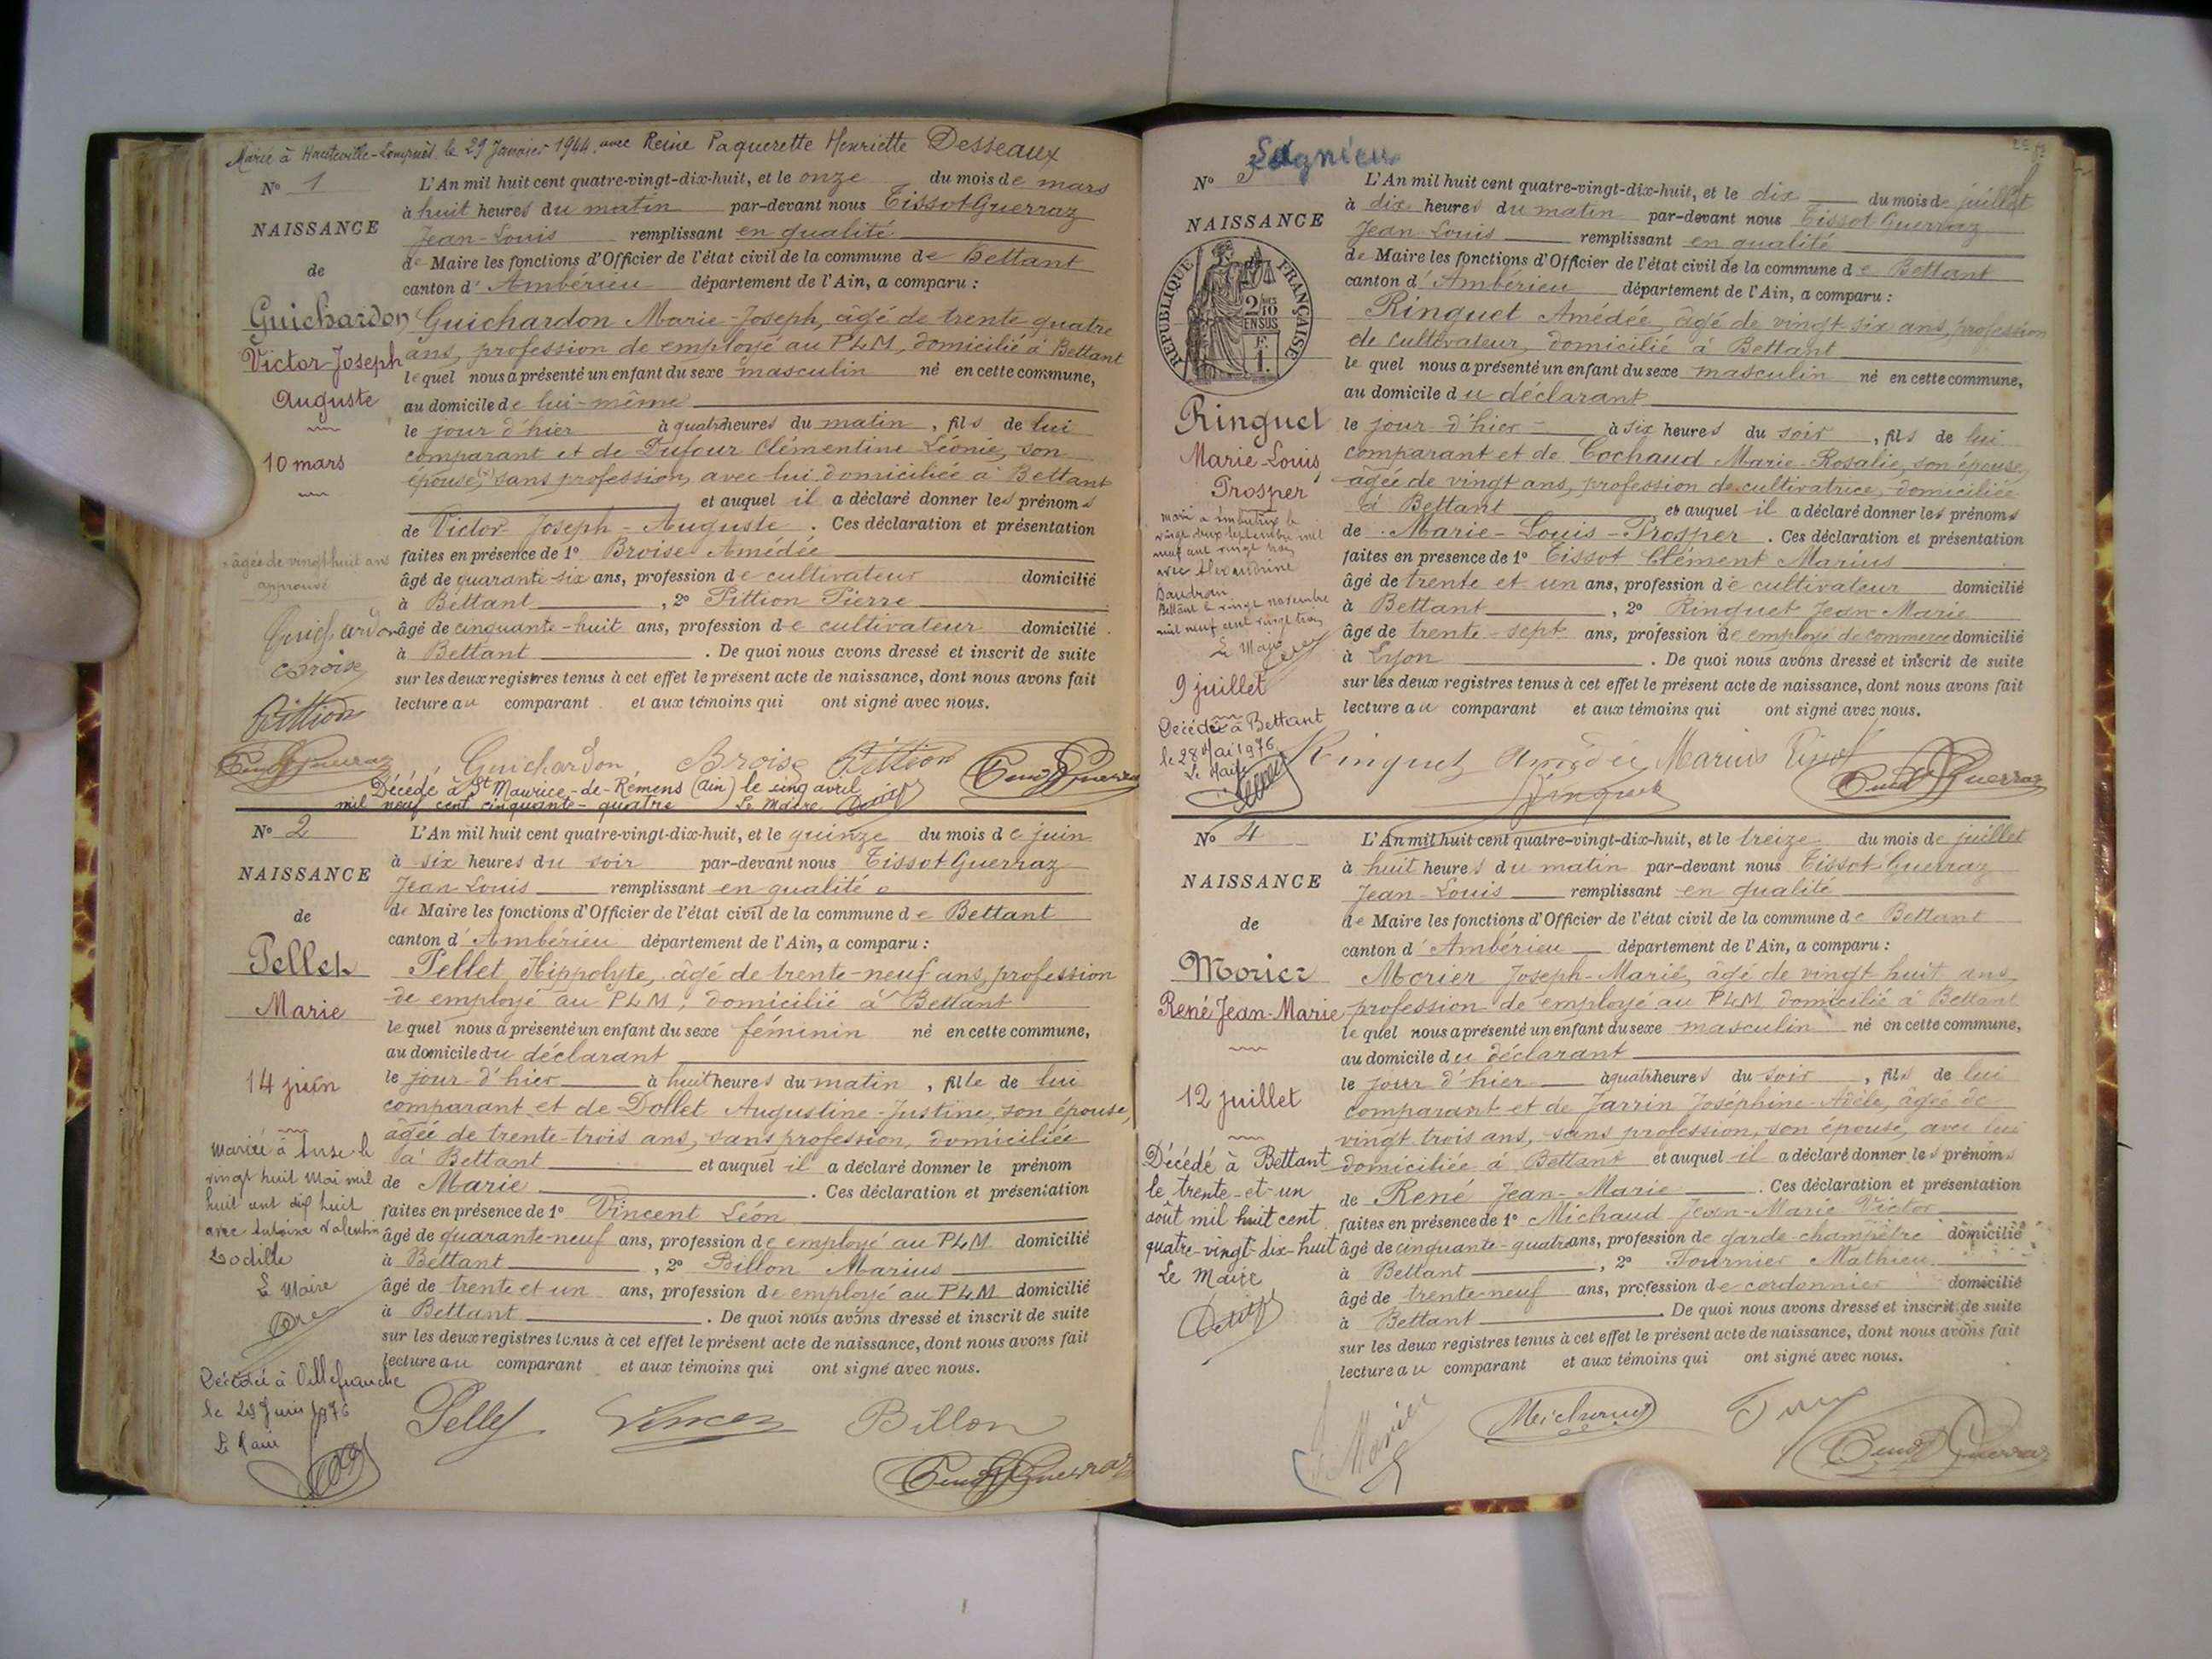 Marié à Hauteville-Lompnès, le 29 Janvier 1944, avec Reine Paquerette Henriette Desseaux
N° 1
NAISSANCE
de
Guichardon
Victor-Joseph
Auguste
10 mars
âgée de vingt huit ans
approuvé
Guichardon
Broise
Pittion
L'An mil huit cent quatre-vingt-dix-huit, et le onze du mois de mars
à huit heures du matin par-devant nous Tissot-Guerraz
Jean-Louis remplissant en qualité
de Maire les fonctions d'Officier de l'état civil de la commune de Bettant
canton d'Ambérieu département de l'Ain, a comparu :
Guichardon Marie-Joseph, âgé de trente quatre
ans, profession de employé au PLM, domicilié à Bettant
lequel nous a présenté un enfant du sexe masculin né en cette commune,
au domicile de lui-même
le jour d'hier à quatre heures du matin, fils de lui
comparant et de Dufour Clémentine Léonie, son
épouse, sans profession, avec lui domiciliée à Bettant
et auquel il a déclaré donner les prénoms
de Victor-Joseph-Auguste. Ces déclaration et présentation
faites en présence de 1° Broise Amédée
âgé de quarante-six ans, profession de cultivateur domicilié
à Bettant, 2° Pittion Pierre
âgé de cinquante-huit ans, profession de cultivateur domicilié
à Bettant. De quoi nous avons dressé et inscrit de suite
sur les deux registres tenus à cet effet le présent acte de naissance, dont nous avons fait
lecture au comparant et aux témoins qui ont signé avec nous.
Guichardon Broise Pittion
Décédé à St Maurice-de-Rémens (Ain) le cinq avril
mil neuf cent cinquante-quatre Le Maire
N° 2
NAISSANCE
de
Pellet
Marie
14 juin
Mariée à Anse le
vingt huit Mai mil
huit cent dix huit
avec Antoine Valentin
Le Maire
Décédée à Villefranche
le 29 Juin 1976
Le Maire
L'An mil huit cent quatre-vingt-dix-huit, et le quinze du mois de juin
à six heures du soir par-devant nous Tissot-Guerraz
Jean-Louis remplissant en qualité
de Maire les fonctions d'Officier de l'état civil de la commune de Bettant
canton d'Ambérieu département de l'Ain, a comparu :
Pellet Hippolyte, âgé de trente-neuf ans, profession
de employé au PLM, domicilié à Bettant
lequel nous a présenté un enfant du sexe féminin né en cette commune,
au domicile du déclarant
le jour d'hier à huit heures du matin, fille de lui
comparant et de Dollet Augustine-Justine, son épouse,
âgée de trente-trois ans, sans profession, domiciliée
à Bettant et auquel il a déclaré donner le prénom
de Marie. Ces déclaration et présentation
faites en présence de 1° Vincent Léon
âgé de quarante-neuf ans, profession de employé au PLM domicilié
à Bettant, 2° Billon Marius
âgé de trente et un ans, profession de employé au PLM domicilié
à Bettant. De quoi nous avons dressé et inscrit de suite
sur les deux registres tenus à cet effet le présent acte de naissance, dont nous avons fait
lecture au comparant et aux témoins qui ont signé avec nous.
Billon
N° 3
NAISSANCE
RÉPUBLIQUE FRANÇAISE
2/10 EN SUS
Ringuet
Marie-Louis
Prosper
vingt deux septembre mil
neuf cent vingt trois
avec Alexandrine
Baudran
Bettant le vingt novembre
mil neuf cent vingt trois
Le Maire
9 juillet
Décédé à Bettant
le 28 Mai 1976
Le Maire
L'An mil huit cent quatre-vingt-dix-huit, et le dix du mois de juillet
à dix heures du matin par-devant nous Tissot Guerraz
Jean Louis remplissant en qualité
de Maire les fonctions d'Officier de l'état civil de la commune de Bettant
canton d'Ambérieu département de l'Ain, a comparu :
Ringuet Amédée, âgé de vingt-six ans, profession
de cultivateur, domicilié à Bettant
lequel nous a présenté un enfant du sexe masculin né en cette commune,
au domicile du déclarant
le jour d'hier à six heures du soir, fils de lui
comparant et de Cochaud Marie-Rosalie, son épouse,
âgée de vingt ans, profession de cultivatrice, domiciliée
à Bettant et auquel il a déclaré donner les prénoms
de Marie-Louis-Prosper. Ces déclaration et présentation
faites en présence de 1° Tissot Clément Marius
âgé de trente et un ans, profession de cultivateur domicilié
à Bettant, 2° Ringuet Jean-Marie
âgé de trente-sept ans, profession de employé de commerce domicilié
à Lyon. De quoi nous avons dressé et inscrit de suite
sur les deux registres tenus à cet effet le présent acte de naissance, dont nous avons fait
lecture au comparant et aux témoins qui ont signé avec nous.
Ringuet Amédée Marius Tissot
Ringuet
N° 4
NAISSANCE
de
Morier
René Jean-Marie
12 juillet
Décédé à Bettant
le trente-et-un
août mil huit cent
quatre-vingt-dix-huit
Le Maire
L'An mil huit cent quatre-vingt-dix-huit, et le treize du mois de juillet
à huit heures du matin par-devant nous Tissot-Guerraz
Jean-Louis remplissant en qualité
de Maire les fonctions d'Officier de l'état civil de la commune de Bettant
canton d'Ambérieu département de l'Ain, a comparu :
Morier Joseph-Marie, âgé de vingt huit ans
profession de employé au PLM domicilié à Bettant
lequel nous a présenté un enfant du sexe masculin né en cette commune,
au domicile du déclarant
le jour d'hier à quatre heures du soir, fils de lui
comparant et de Jarrin Joséphine-Adèle, âgée de
vingt trois ans, sans profession, son épouse, avec lui
domiciliée à Bettant et auquel il a déclaré donner les prénoms
de René Jean-Marie. Ces déclaration et présentation
faites en présence de 1° Michaud Jean-Marie Victor
âgé de cinquante-quatre ans, profession de garde-champêtre domicilié
à Bettant, 2° Fournier Mathieu
âgé de trente-neuf ans, profession de cordonnier domicilié
à Bettant. De quoi nous avons dressé et inscrit de suite
sur les deux registres tenus à cet effet le présent acte de naissance, dont nous avons fait
lecture au comparant et aux témoins qui ont signé avec nous.
Morier Michaud